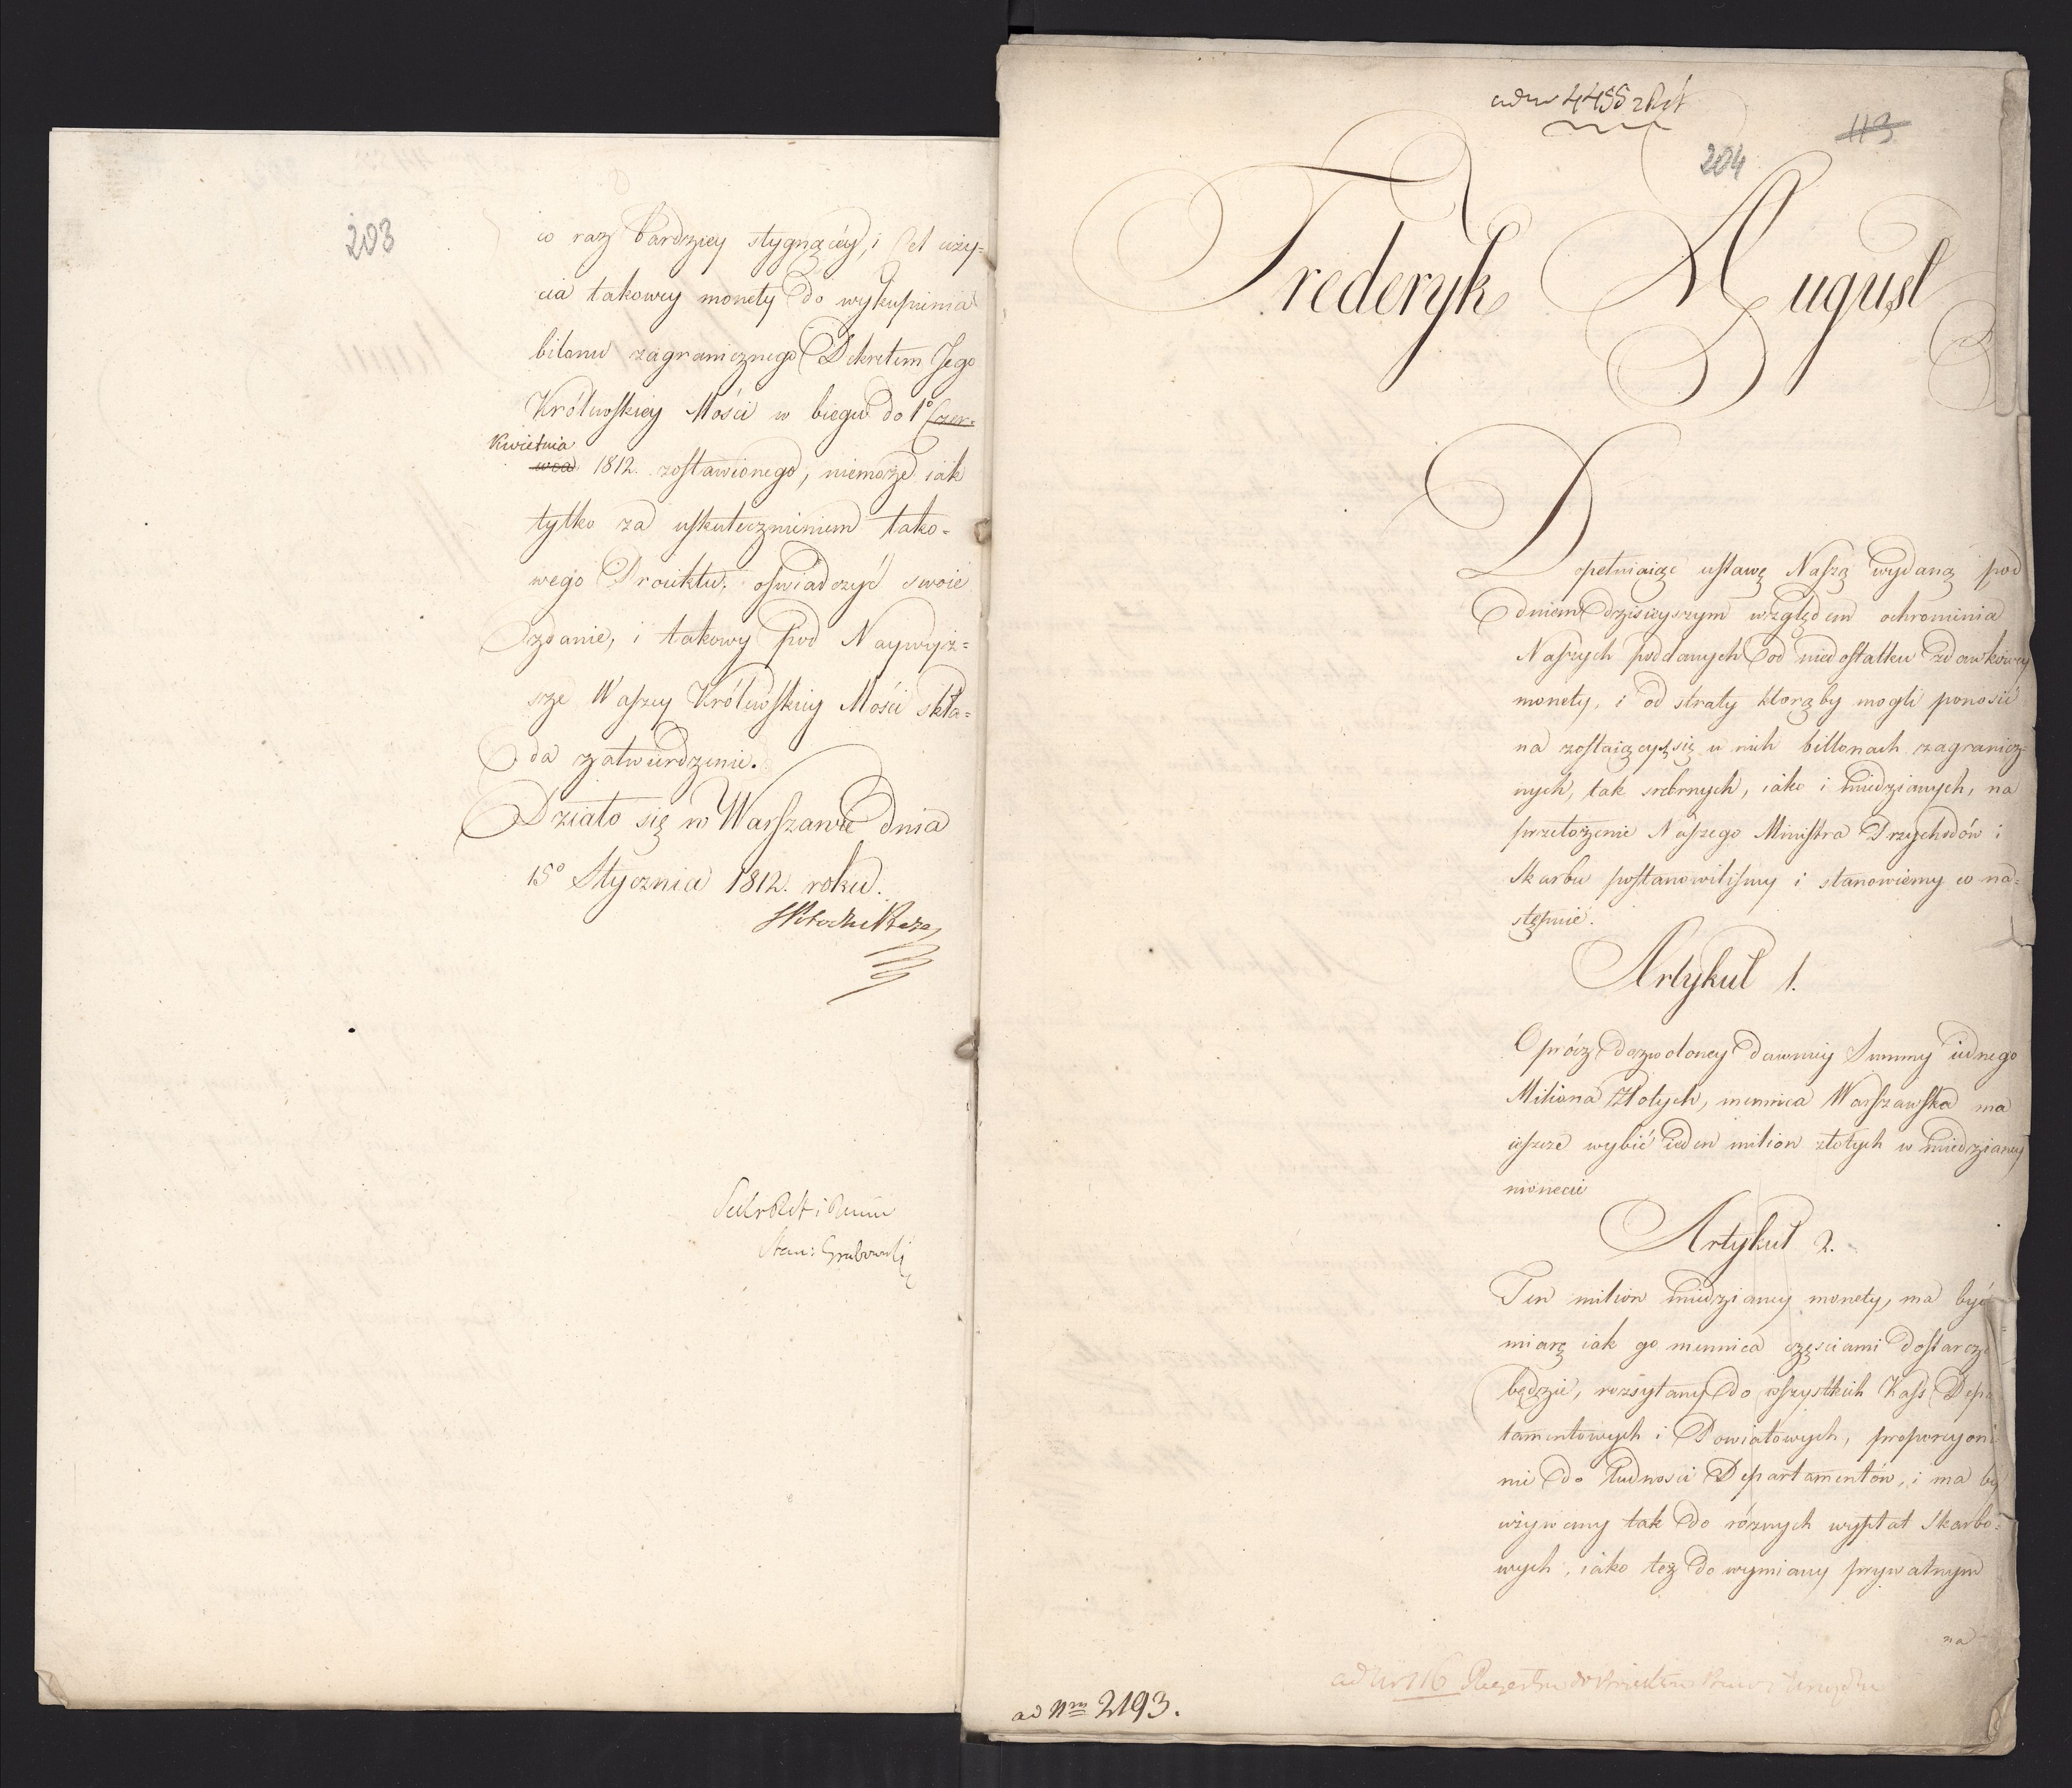 203
co raz bardziey stygnącéy, i cel uży=
cia takowey monety do wykupienia
bilonu zagranicznego Dekretem Jego
Królewskiey Mości w biegu do 1º Czer=
Kwietnia
wca 1812. zostawionego, niemoże iak
tylko za uskutecznieniem tako=
wego Proiektu, oświadczyć swoie
zdanie, i takowy pod Naywyż=
sze Waszey Królewskiey Mości skła=
da zatwierdzenie.
Działo się w Warszawie dnia
15º Stycznia 1812. roku.
Sekr Rdt i Minin
Stan: Grabowski
4455
113
204
Fryderyk August
Dopełniaiąc ustawę Naszą wydaną pod
dniem dzisieyszym względem ochronienia
Naszych poddanych od niedostatku zdawkowey
monety, i od straty którąby mogli ponosić
na zostaiących się u nich billonach zagranicz=
nych, tak srebrnych, iako i miedzianych, na
przełożenie Naszego Ministra Przychodów i
Skarbu postanowiliśmy i stanowiemy co na=
stępnie.
Artykuł 1.
Oprócz dozwoloney dawniey Summy iednego
Miliona Złotych, mennica Warszawska ma
ieszcze wybić ieden milion złotych w miedzianey
monecie
Artykuł 2.
Ten milion miedzianey monety, ma być
miarę iak go mennica częściami dostarcza
będzie, rozsyłany do wszystkich Kass Depa
tamentowych i Powiatowych, proporcyon
nie do ludności Departamentów, i ma by
używany tak do różnych wypłat Skarbo=
wych, iako też do wymiany prywatnym
na
ad Nrm 2193.